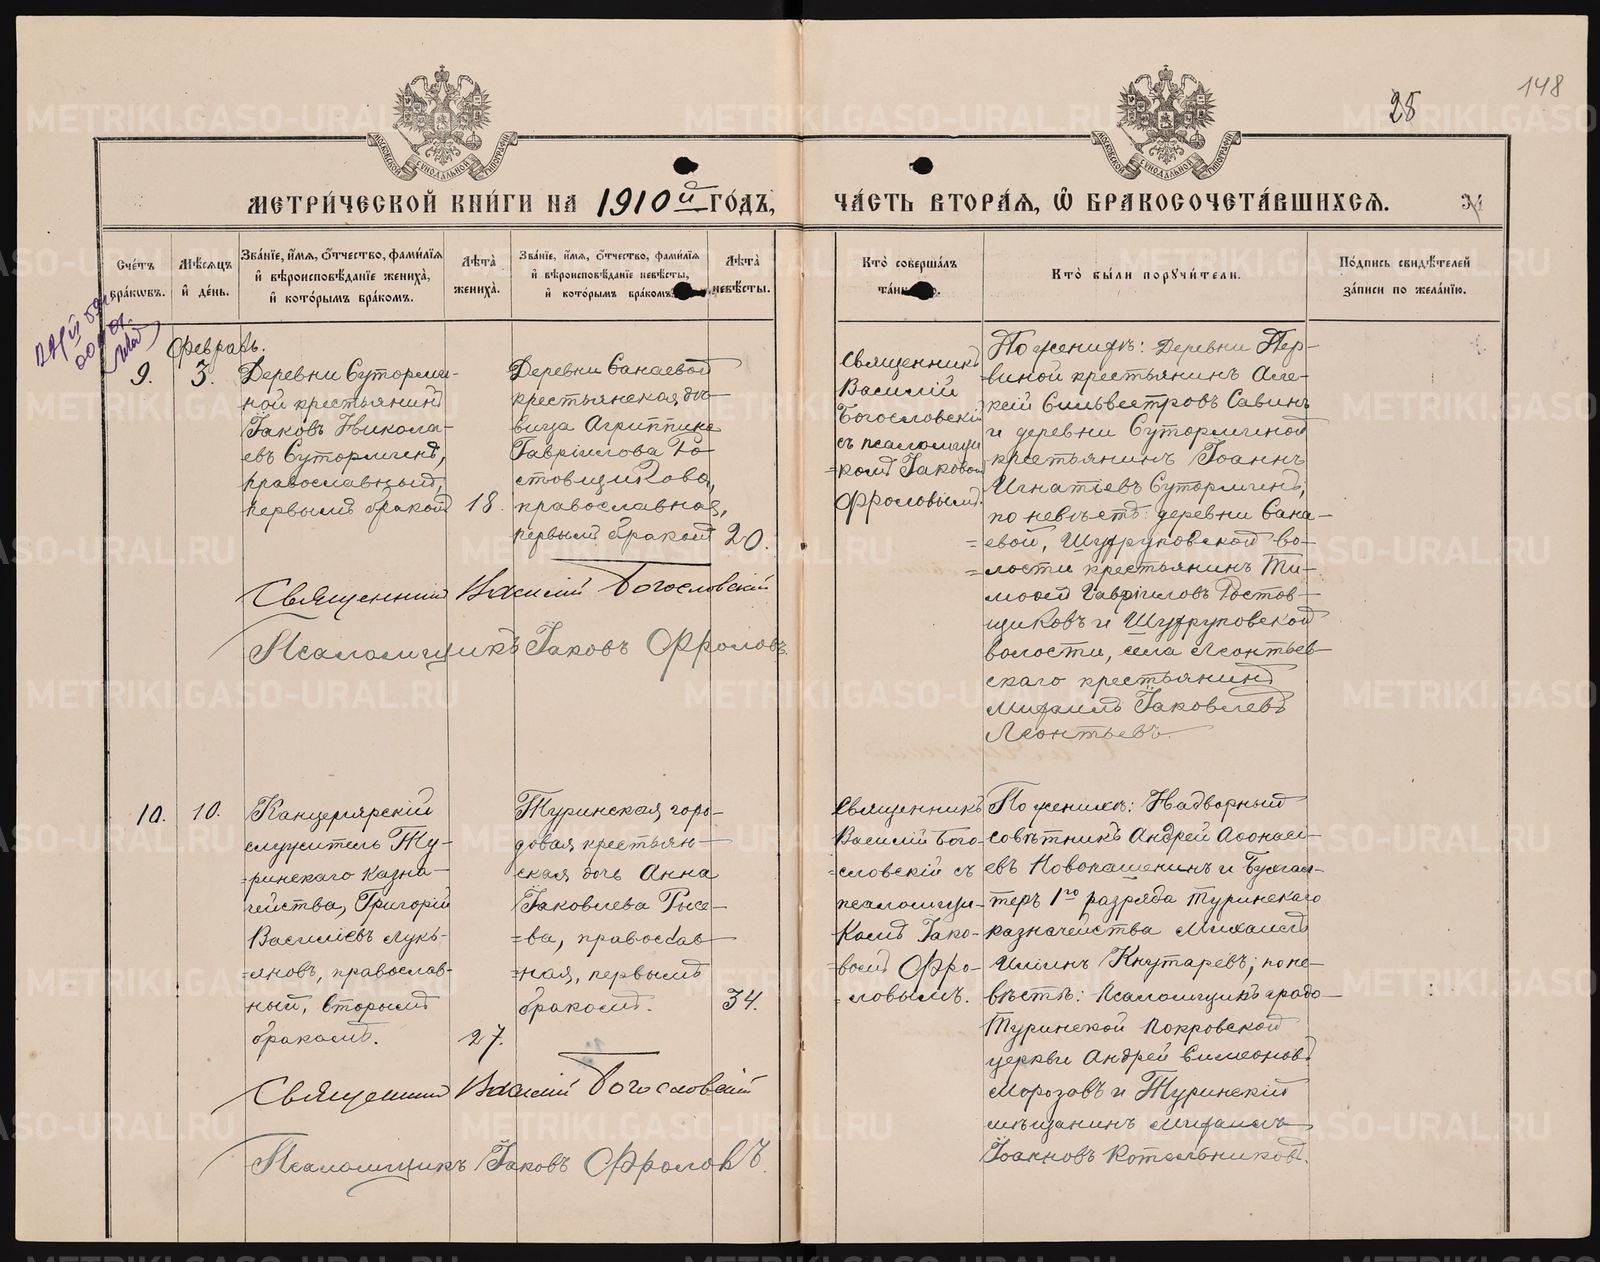 148
28
МЕТРИ́ЧЕСКОЙ КНИ́ГИ НА 1910й ГО́ДЪ,
ЧА́СТЬ ВТОРА́Я, Ѡ БРАКОСОЧЕТА́ВШИХСЯ.
Сче́тъ бра́кѡвъ.
Мѣ́сяцъ и де́нь.
Зва́нїе, и́мя, ѻ҆́тчество, фами́лїя
и҆ вѣроисповѣ́данїе жениха̀,
и҆ кото́рымъ бра́комъ.
Лѣ́та жениха̀.
Зва́нїе, и́мя, ѻ҆́тчество, фами́лїя
и҆ вѣроисповѣ́данїе невѣ́сты,
и҆ кото́рымъ бра́комъ
Лѣ́та невѣ́сты.
Кто̀ соверша́лъ
Кто̀ бы́ли поручи́тели.
По́дпись свидѣ́телей
за́писи по жела́нїю.
Февраль.
9.
3.
Деревни Суторми-
ной крестьянинъ
Іаковъ Никола-
евъ Сутормина,
православный,
первымъ бракомъ
18.
Деревни Санаевой
крестьянская дѣ-
вица Агриппина
Гавріилова Ро-
стовщикова,
православная,
первымъ бракомъ
20.
Священникъ
Василій
Богословскій
съ псаломщи-
комъ Іаковомъ
Фроловымъ.
По женихѣ: Деревни Пер-
виной крестьянинъ Але-
ксій Сильвестровъ Савинъ
и деревни Суторминой
крестьянинъ Іоаннъ
Игнатіевъ Суторминъ;
по невѣстѣ: деревни Сана-
евой, Шухруповской во-
лости крестьянинъ Ти-
моѳей Гавріиловъ Ростов-
щиковъ и Шухруповской
волости, села Леонтьев-
скаго крестьянинъ
Михаилъ Іаковлевъ
Леонтьевъ.
Священникъ Василій Богословскій
Псаломщикъ Іаковъ Фроловъ.
10.
10.
Канцелярскій
служитель Ту-
ринскаго казна-
чейства, Григорій
Василіевъ Лукь-
яновъ, православ-
ный, вторымъ
бракомъ.
27.
Туринская горо-
довая крестьян-
ская дочь Анна
Іаковлева Рысе-
ва, православ-
ная, первымъ
бракомъ.
34.
Священникъ
Василій Бого-
словскій съ
псаломщи-
комъ Іако-
вомъ Фро-
ловымъ.
По женихѣ: Надворный
совѣтникъ Андрей Аѳонасі-
евъ Новопашенинъ и бухгал-
теръ 1го разряда Туринскаго
казначейства Михаилъ
Илiинъ Кнутаревъ; по не-
вѣстѣ: Псаломщикъ градо-
Туринской Покровской
церкви Андрей Симеоновъ
Морозовъ и Туринскій
мѣщанинъ Михаилъ
Іоанновъ Котельниковъ.
Священникъ Василій Богословскій
Псаломщикъ Іаковъ Фроловъ.
METRIKI.GASO-URAL.RU